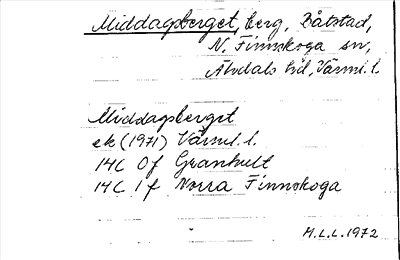 Middagsberget, berg, Båtstad,
N. Finnskoga sn,
Älvdals hd, Värml. l.
Middagsberget
ek (1971) Värml. l.
14C 0f Granhult
14C 1f Norra Finnskoga
H.L.L. 1972